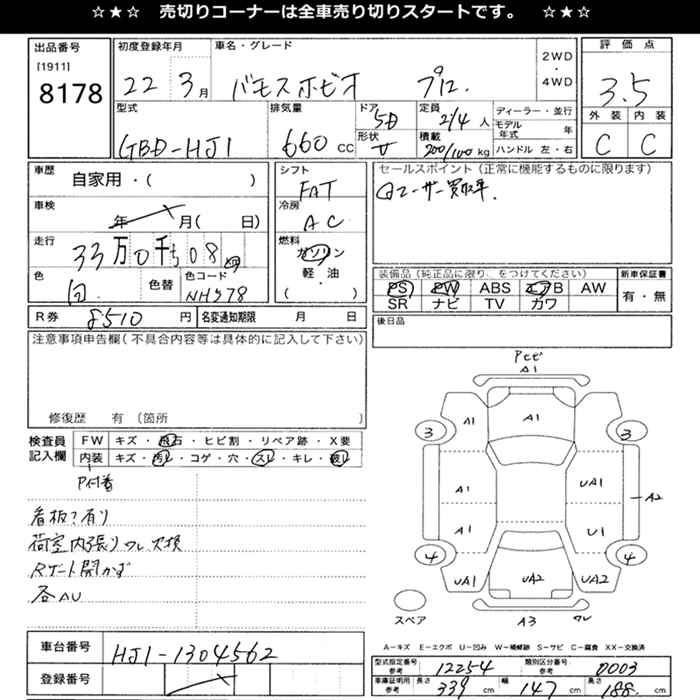 ☆★☆ 売切りコーナーは全車売り切りスタートです。 ☆★☆
出品番号
[1911]
8178
初度登録年月
22 3月
車名・グレード
バモスホビオ プロ.
2WD
・
4WD
評価点
3.5
外装 内装
C C
型式
GBD-HJ1
排気量
660 CC
ドア
5D
形状
V
定員
2/4 人
積載
200/100 kg
ディーラー・並行
モデル年式 年
ハンドル 左・右
車歴
自家用・( )
車検
年 月( 日)
走行
33万0千508 km
色
白.
色替
色コード
NH578
シフト
FAT
冷房
AC
燃料
ガソリン
軽・油
( )
セールスポイント(正常に機能するものに限ります)
ユーザー買取車.
装備品(純正品に限り、をつけてください)
PS PW ABS エアB AW
SR ナビ TV カワ
新車保証書
有・無
R券 8510 円
名変通知期限 月 日
後日品
注意事項申告欄(不具合内容等は具体的に記入して下さい)
修復歴 有 (箇所
検査員
記入欄
FW キズ・飛石・ヒビ割・リペア跡・X要
内装 キズ・汚れ・コゲ・穴・スレ・キレ・破レ
P付着
看板?有り
荷室内張りワレ欠損
Rゲート開かず
各AU
Pセビ
A1
A1
3 A1 A1 3
A1 UA1 A2
A1 U1
4 4
UA1 UA2 UA2
スペア
A3 ワレ
A-キズ E-エクボ U-凹み W-補修跡 S-サビ C-腐食 XX-交換済
車台番号
HJ1-1304562
登録番号
型式指定番号
参考
12254
類別区分番号
参考
0003
車庫証明用
参考
長さ 339 cm 幅 147 cm 高さ 188 cm